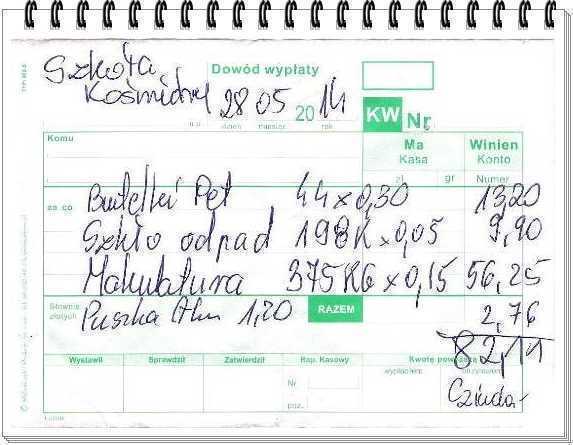 Szkoła
Kośmidry
Dowód wypłaty
28 05 2014
dzień miesiąc rok
KW Nr
Komu
Ma Winien
Kasa Konto
zł gr Numer
za co Butelki Pet 44 x 0,30 13,20
Szkło odpad 198K x 0,05 9,90
Makulatura 375KG x 0,15 56,25
Słownie
złotych
Puszka Alu 1,20 RAZEM 2,76
82,11
Wystawił Sprawdził Zatwierdził Rap. Kasowy Kwotę powyższą
wypłaciłem otrzymałem
Nr
poz.